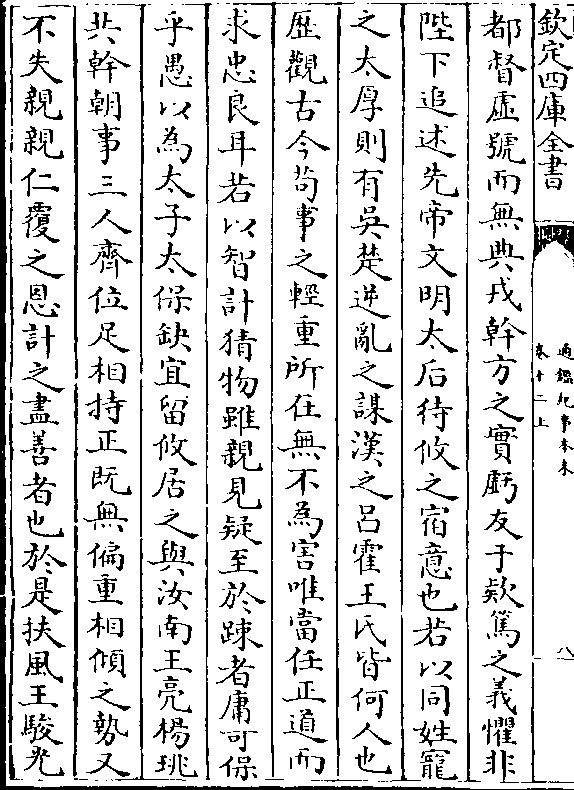 欽定四庫全書
通鑑紀事本末
卷十二上
八
都督虛號而無典戎幹方之實虧友于欵篤之義懼非
陛下追述先帝文明太后待攸之宿意也若以同姓寵
之太厚則有吳楚逆亂之謀漢之呂霍王氏皆何人也
歷觀古今苟事之輕重所在無不為害唯當任正道而
求忠良耳若以智計猜物雖親見疑至於踈者庸可保
乎愚以為太子太保缺宜留攸居之與汝南王亮楊珧
共幹朝事三人齊位足相持正既無偏重相傾之勢又
不失親親仁覆之恩計之盡善者也於是扶風王駿光